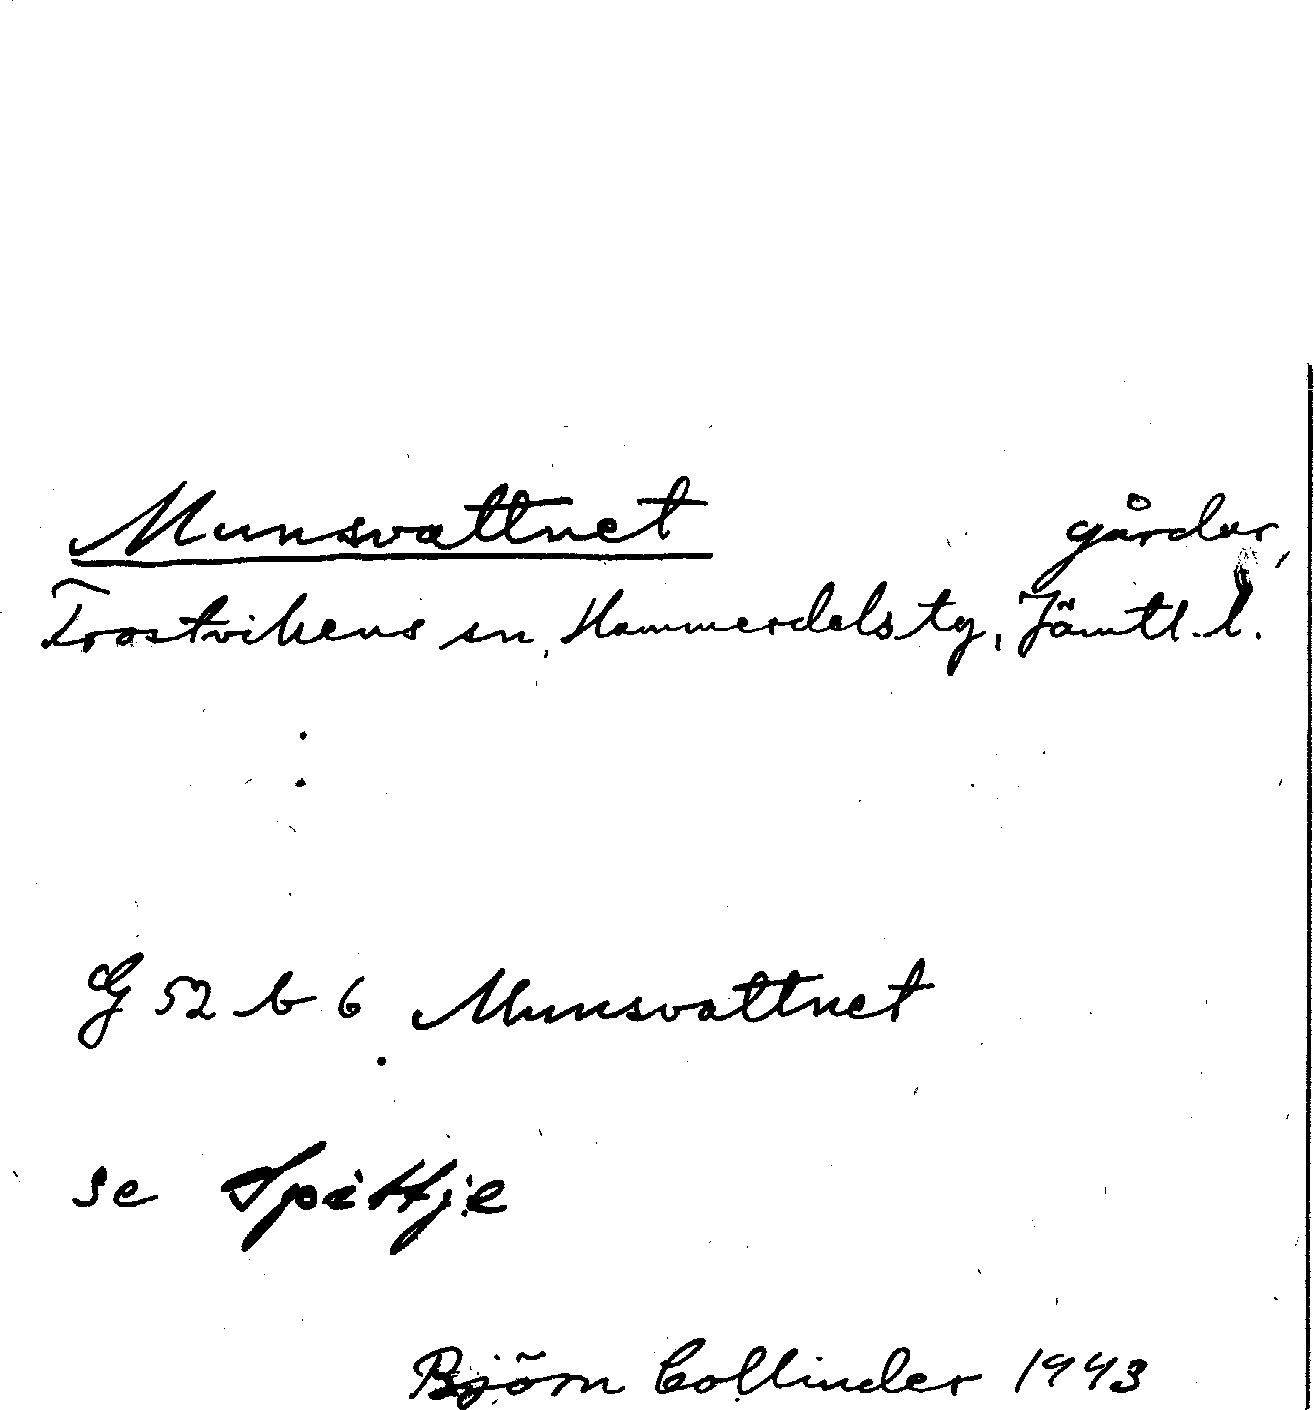 Munsvattnet gårdar,
Frostvikens sn, Hammerdals tg, Jämtl. l.
G 52 b 6 Munsvattnet
se
Björn Collinder 1943